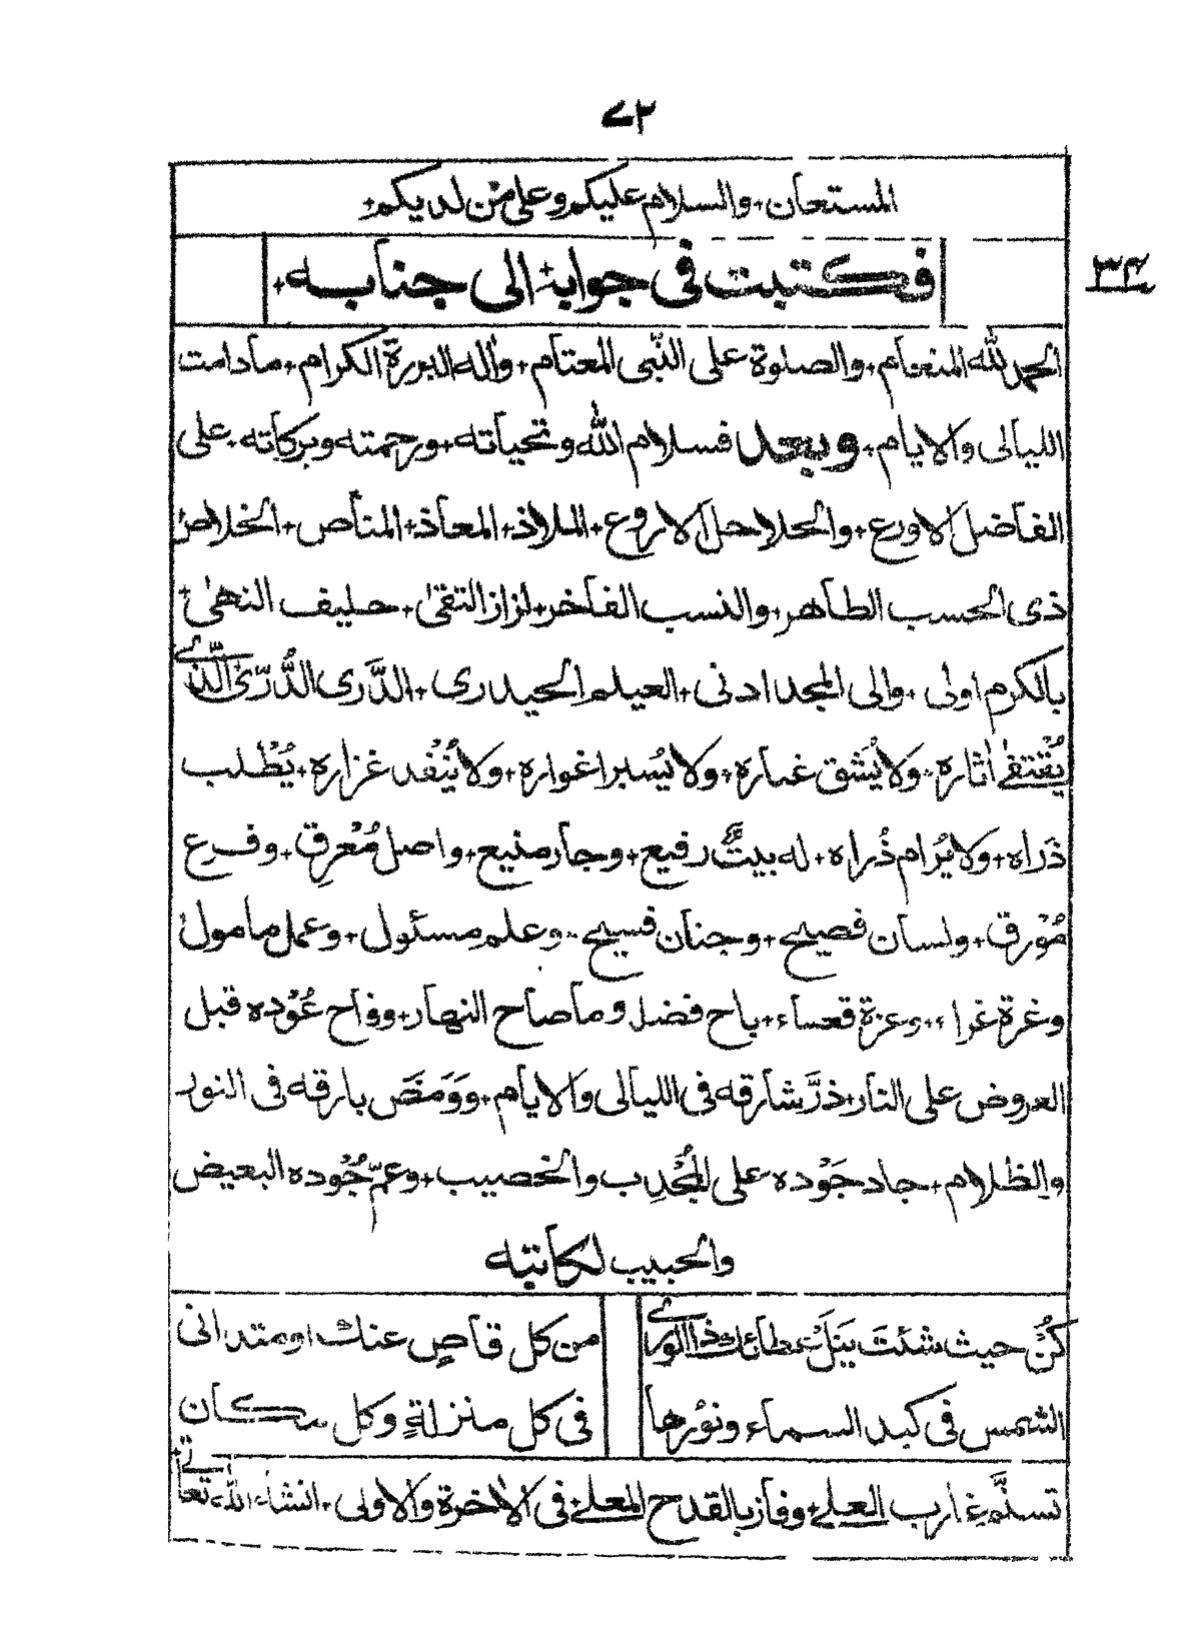 ۷۲
المستعان+ والسلام عليكم وعلى من لديكم+
فكتبت فى جوابه الى جنابه+
۳۴
الحمد لله المنعام+ والصلوة على النّبى المعتام+ واٰله البررة الكرام+ مادامت
الليالى والايام+ وبعد فسلام الله وتحياته+ ورحمته وبركاته+ على
الفاضل الاورع+ والحلاحل الاروع+ الملاذ+ المعاذ+ المناص+ الخلاص
ذى الحسب الطاهر+ والنسب الفاخر+ لزاز التقىٰ+ حليف النهىٰ+
بالكرم اولى+ والى المجد ادنى+ العيلم الحيدرى+ الدَّرى الدُّرّى الّذى
يُقْتفىٰ اٰثاره+ ولا يُشق غباره+ ولا يُسبر اغواره+ ولا يُنْفد غزاره+ يُطْلب
ذَراه+ ولا يُرام ذُراه+ له بيتٌ رفيع+ وجار منيع+ واصل مُعْرِق+ وفرع
مُوْرق+ ولسان فصيح+ وجنان فسيح+ وعلم مسئول+ وعمل مامول+
وغرة غراء+ وعزة قعساء+ باح فضل وماصاح النهار+ وفاح عُوْده قبل
العروض على النار+ ذرَّ شارقه فى الليالى والايام+ ووَمَضَ بارقه فى النور
والظلام+ جاد جَوْده على المُجْدِب والخصيب+ وعمّ جُوْده البعيض
والحبيب لكاتبه
كُنْ حيث شئتَ يَنَلْ عطائك ذا الورى
من كل قاصٍ عنك او متدانى
الشمس فى كبد السماء ونوْرها
فى كل منزلةٍ وكل مكان
تسنَّم غارب العلى+ وفاز بالقدح المعلى فى الاٰخرة والاولى+ انشاء الله تعالى+